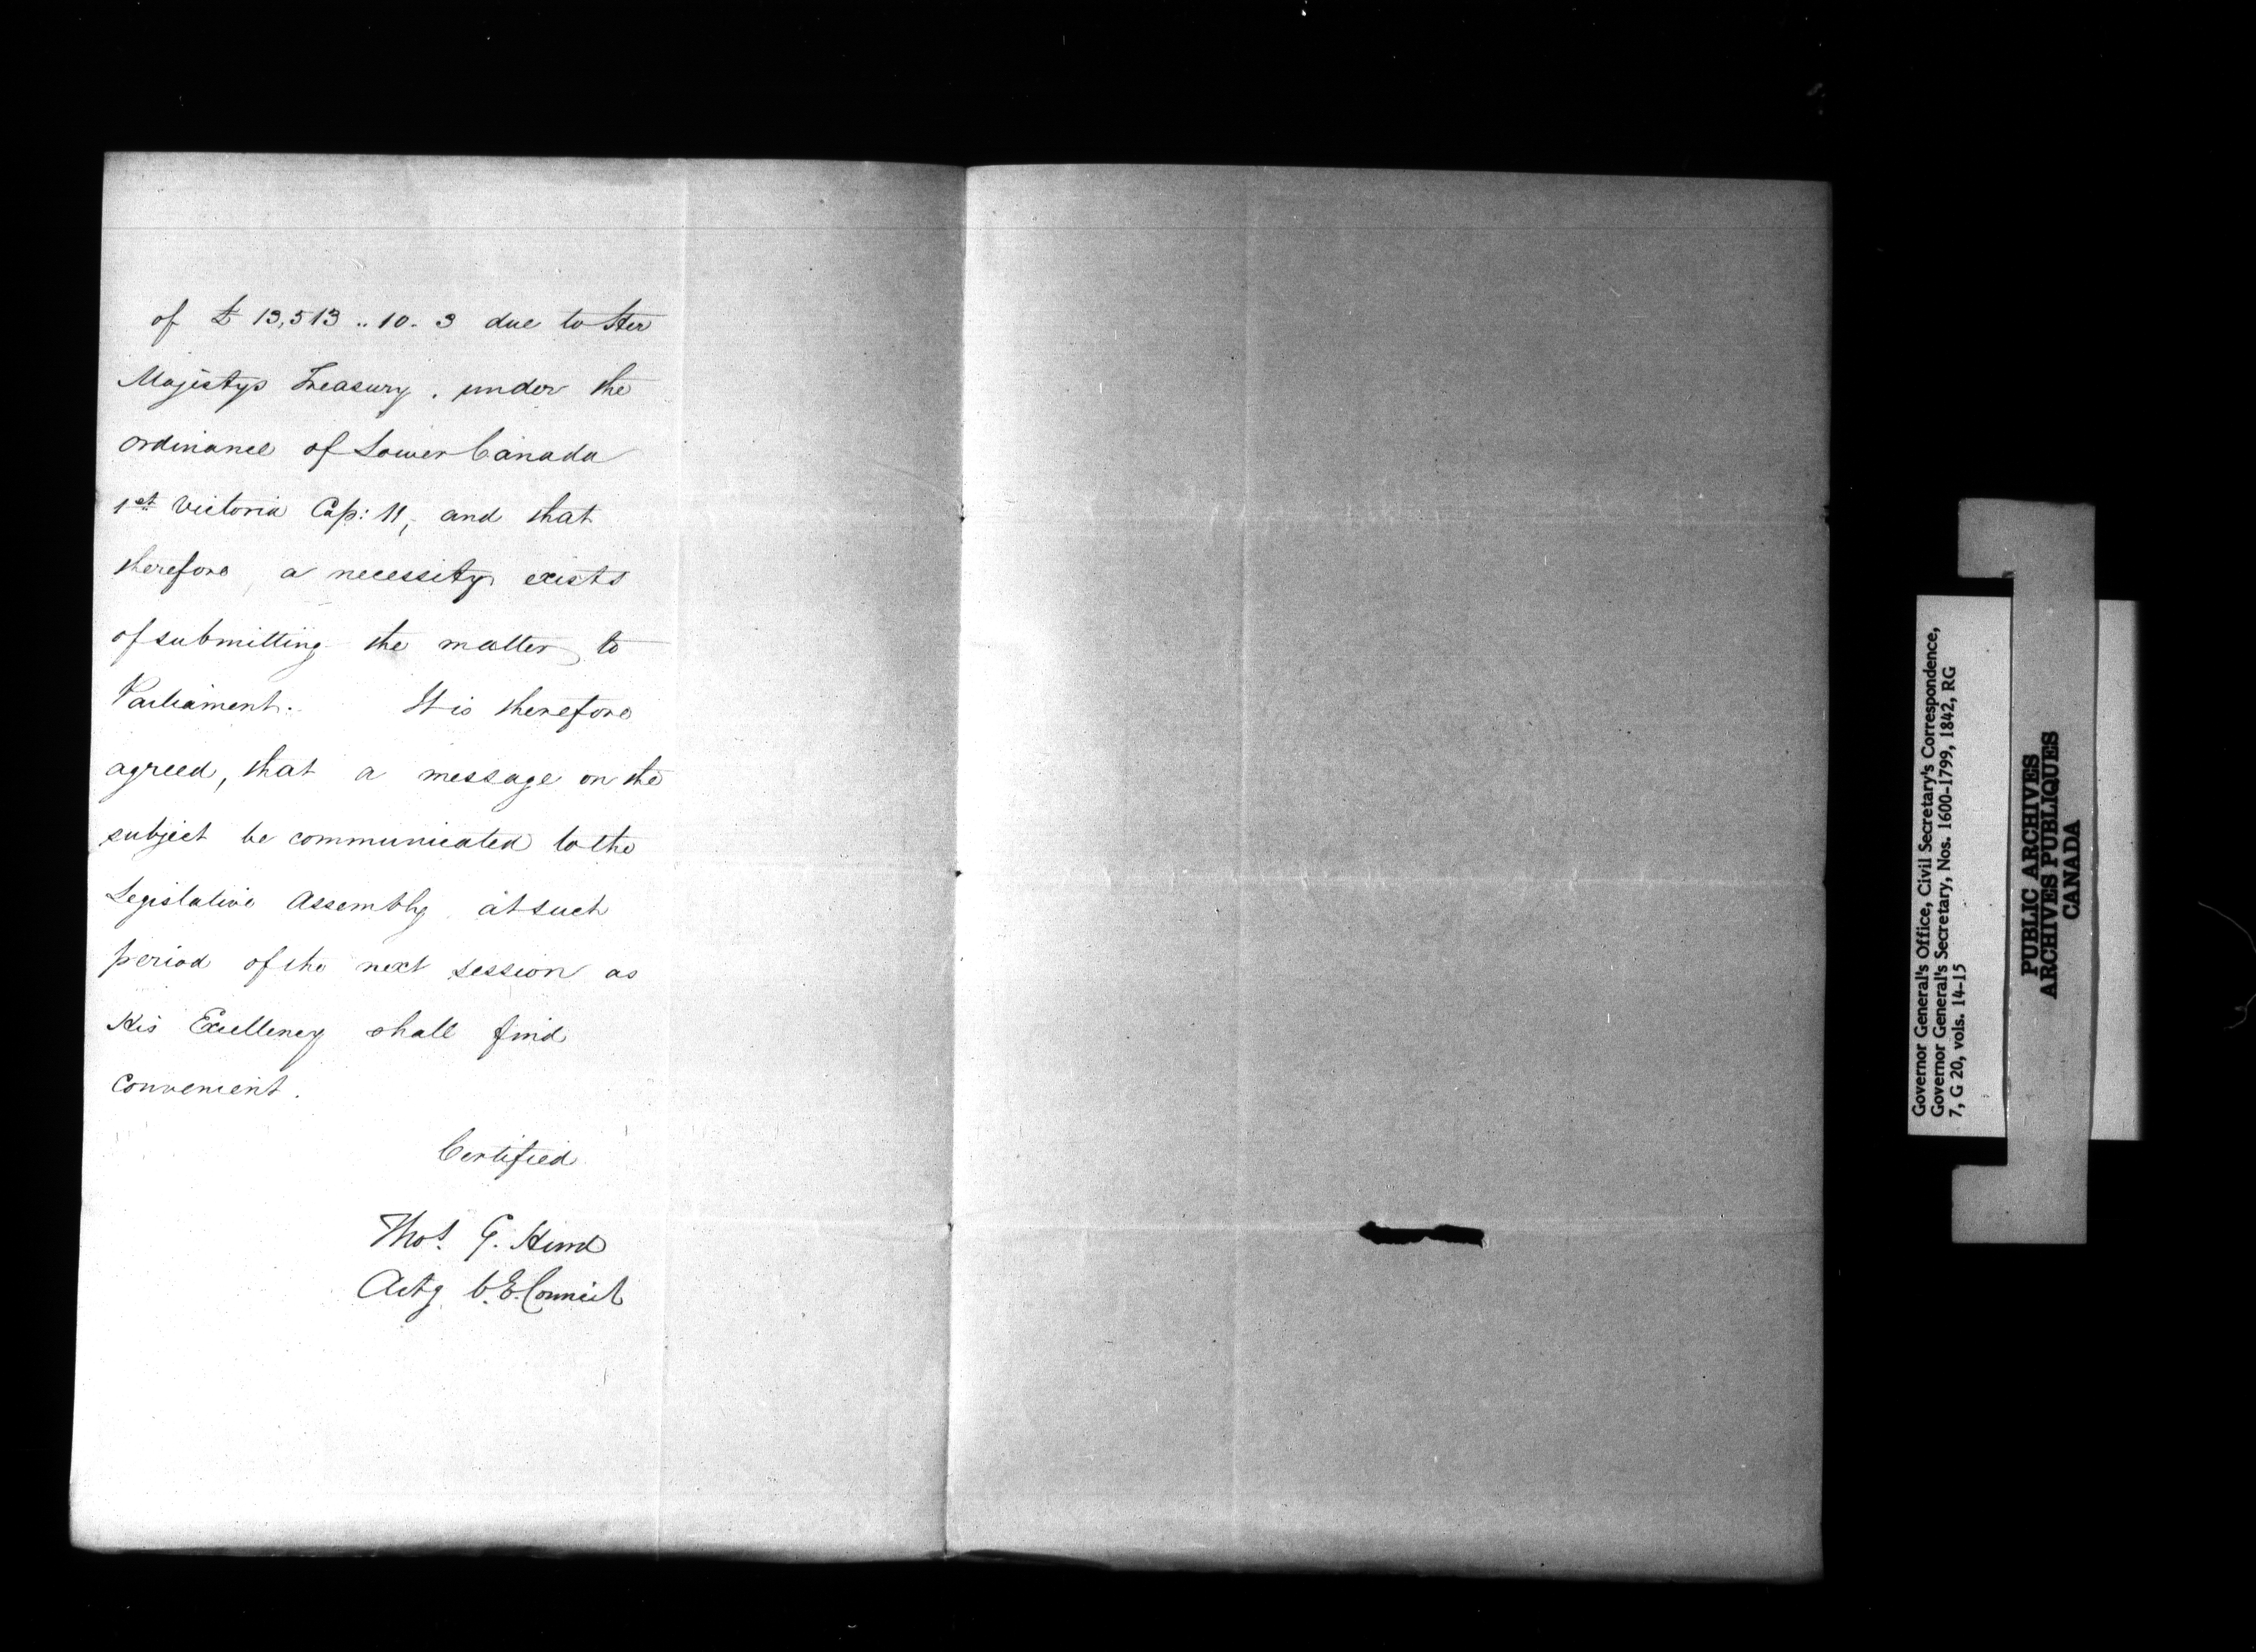 of £ 13,513 .. 10. 3 due to Her
Majestys Treasury. under the
Ordinance of Lower Canada
1st Victoria Cap: 11, and that
therefore a necessity exists
of submitting the matter to
Parliament. It is therefore
agreed, that a message on the
subject be communicated to the
Legislative Assembly at such
period of the next session as
His Excellency shall find
convenient.
Certified
Thos. G. Hurd
Actg C. E. Council
Governor General's Office, Civil Secretary's Correspondence,
Governor General's Secretary, Nos. 1600-1799, 1842, RG
7, G 20, vols. 14-15
PUBLIC ARCHIVES
ARCHIVES PUBLIQUES
CANADA